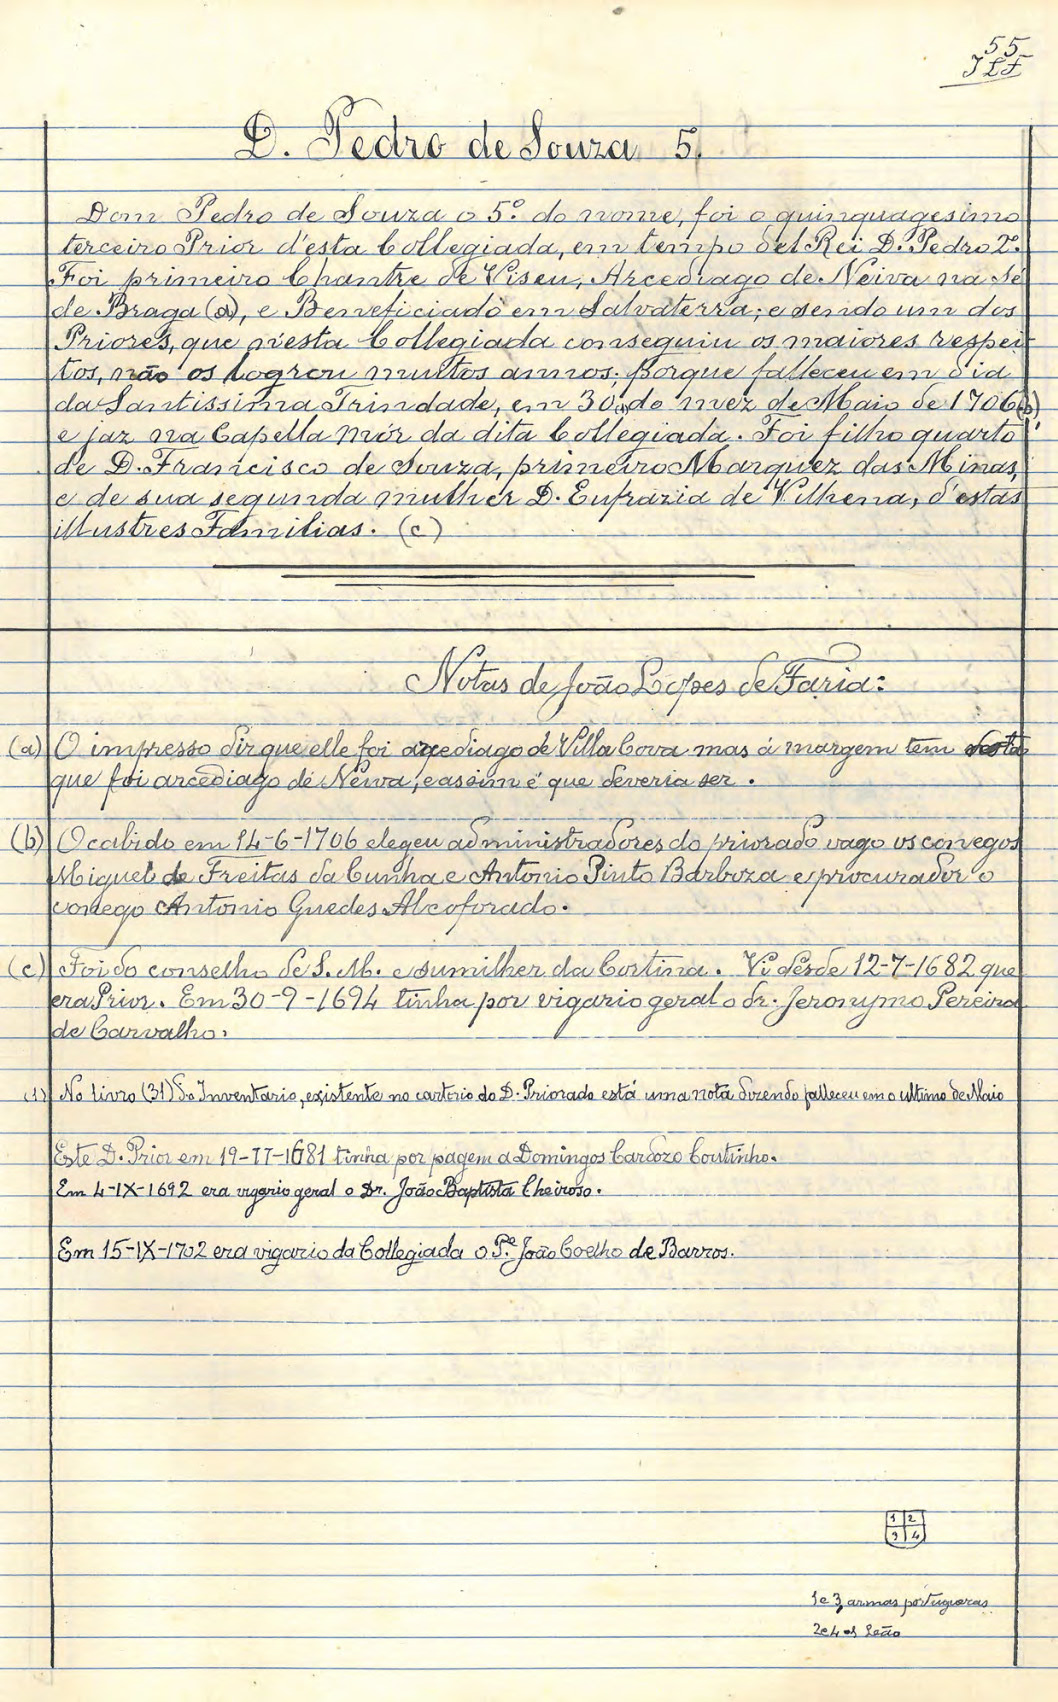 55
JLF
D. Pedro de Souza 5.
Dom Pedro de Souza o 5.º do nome, foi o quinquagesimo
terceiro Prior d'esta Collegiada, em tempo del Rei D. Pedro 2º.
Foi primeiro Chantre de Viseu, Arcediago de Neiva na Sé
de Braga (a), e Beneficiado em Salvaterra; e sendo um dos
Priores, que n'esta Collegiada conseguiu os maiores respei-
tos, não os logrou muitos annos; porque falleceu em dia
da Santissima Trindade, em 30 (1) do mez de Maio de 1706 (b)
e jaz na Capella mór da dita Collegiada. Foi filho quarto
de D. Francisco de Souza, primeiro Marquez das Minas,
e de sua segunda mulher D. Eufrazia de Vilhena, d'estas
illustres Familias. (c)
Notas de João Lopes de Faria:
(a) O impresso diz que elle foi arcediago de Villa Cova mas á margem tem
que foi arcediago de Neiva, e assim é que deveria ser.
(b) O cabido em 14-6-1706 elegeu administradores do priorado vago os conegos
Miguel de Freitas da Cunha e Antonio Pinto Barboza e procurador o
conego Antonio Guedes Alcoforado.
(c) Foi do conselho de S. M. e sumilher da Cortina. Vi desde 12-7-1682 que
era Prior. Em 30-9-1694 tinha por vigario geral o dr. Jeronymo Pereira
de Carvalho.
(1) No livro (31) do Inventario, existente no cartorio do D. Priorado está uma nota dizendo falleceu em o ultimo de Maio
Este D. Prior em 19-II-1681 tinha por pagem a Domingos Cardozo Coutinho.
Em 4-IX-1692 era vigario geral o Dr. João Baptista Cheiroso.
Em 15-IX-1702 era vigario da Collegiada o P.e João Coelho de Barros.
1 2
3 4
1 e 3, armas portuguezas
2 e 4 Leão